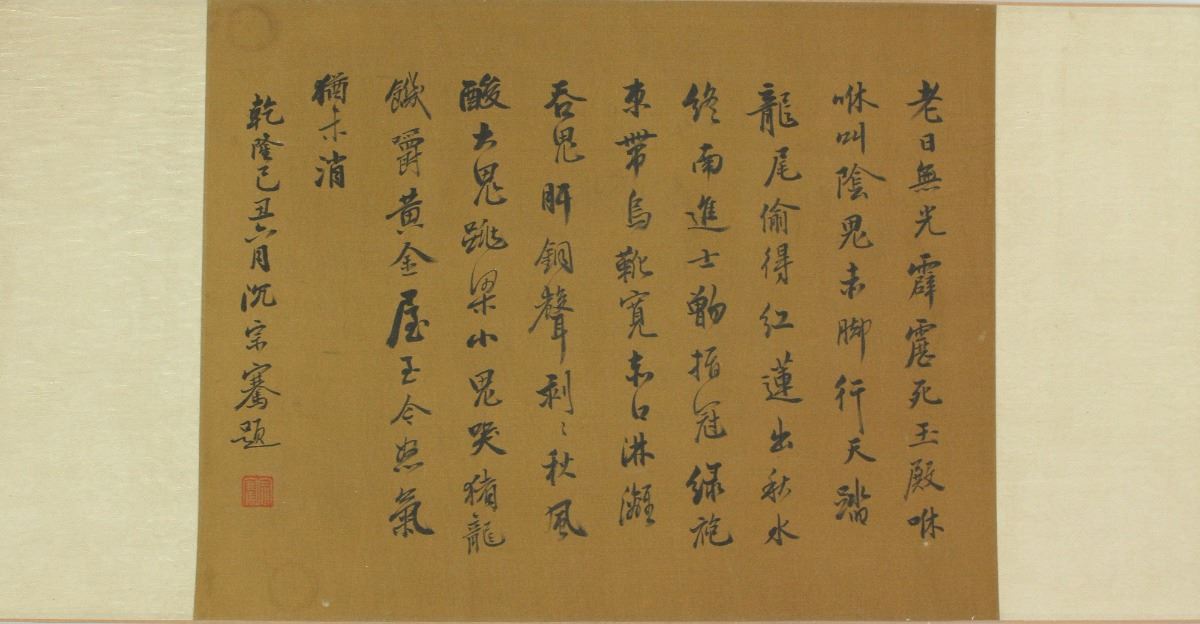 老日無光霹靂死玉殿咻
咻叫陰鬼赤脚行天踏
龍尾偷得紅蓮出秋水
終南進士指冠綠袍
束帶烏靴寬赤口淋漓
吞鬼肝銅聲剥〻秋風
酸大鬼跳梁小鬼哭猪龍
饑嚼黃金屋至今怒氣
猶未消
乾隆己丑六月沈宗騫題